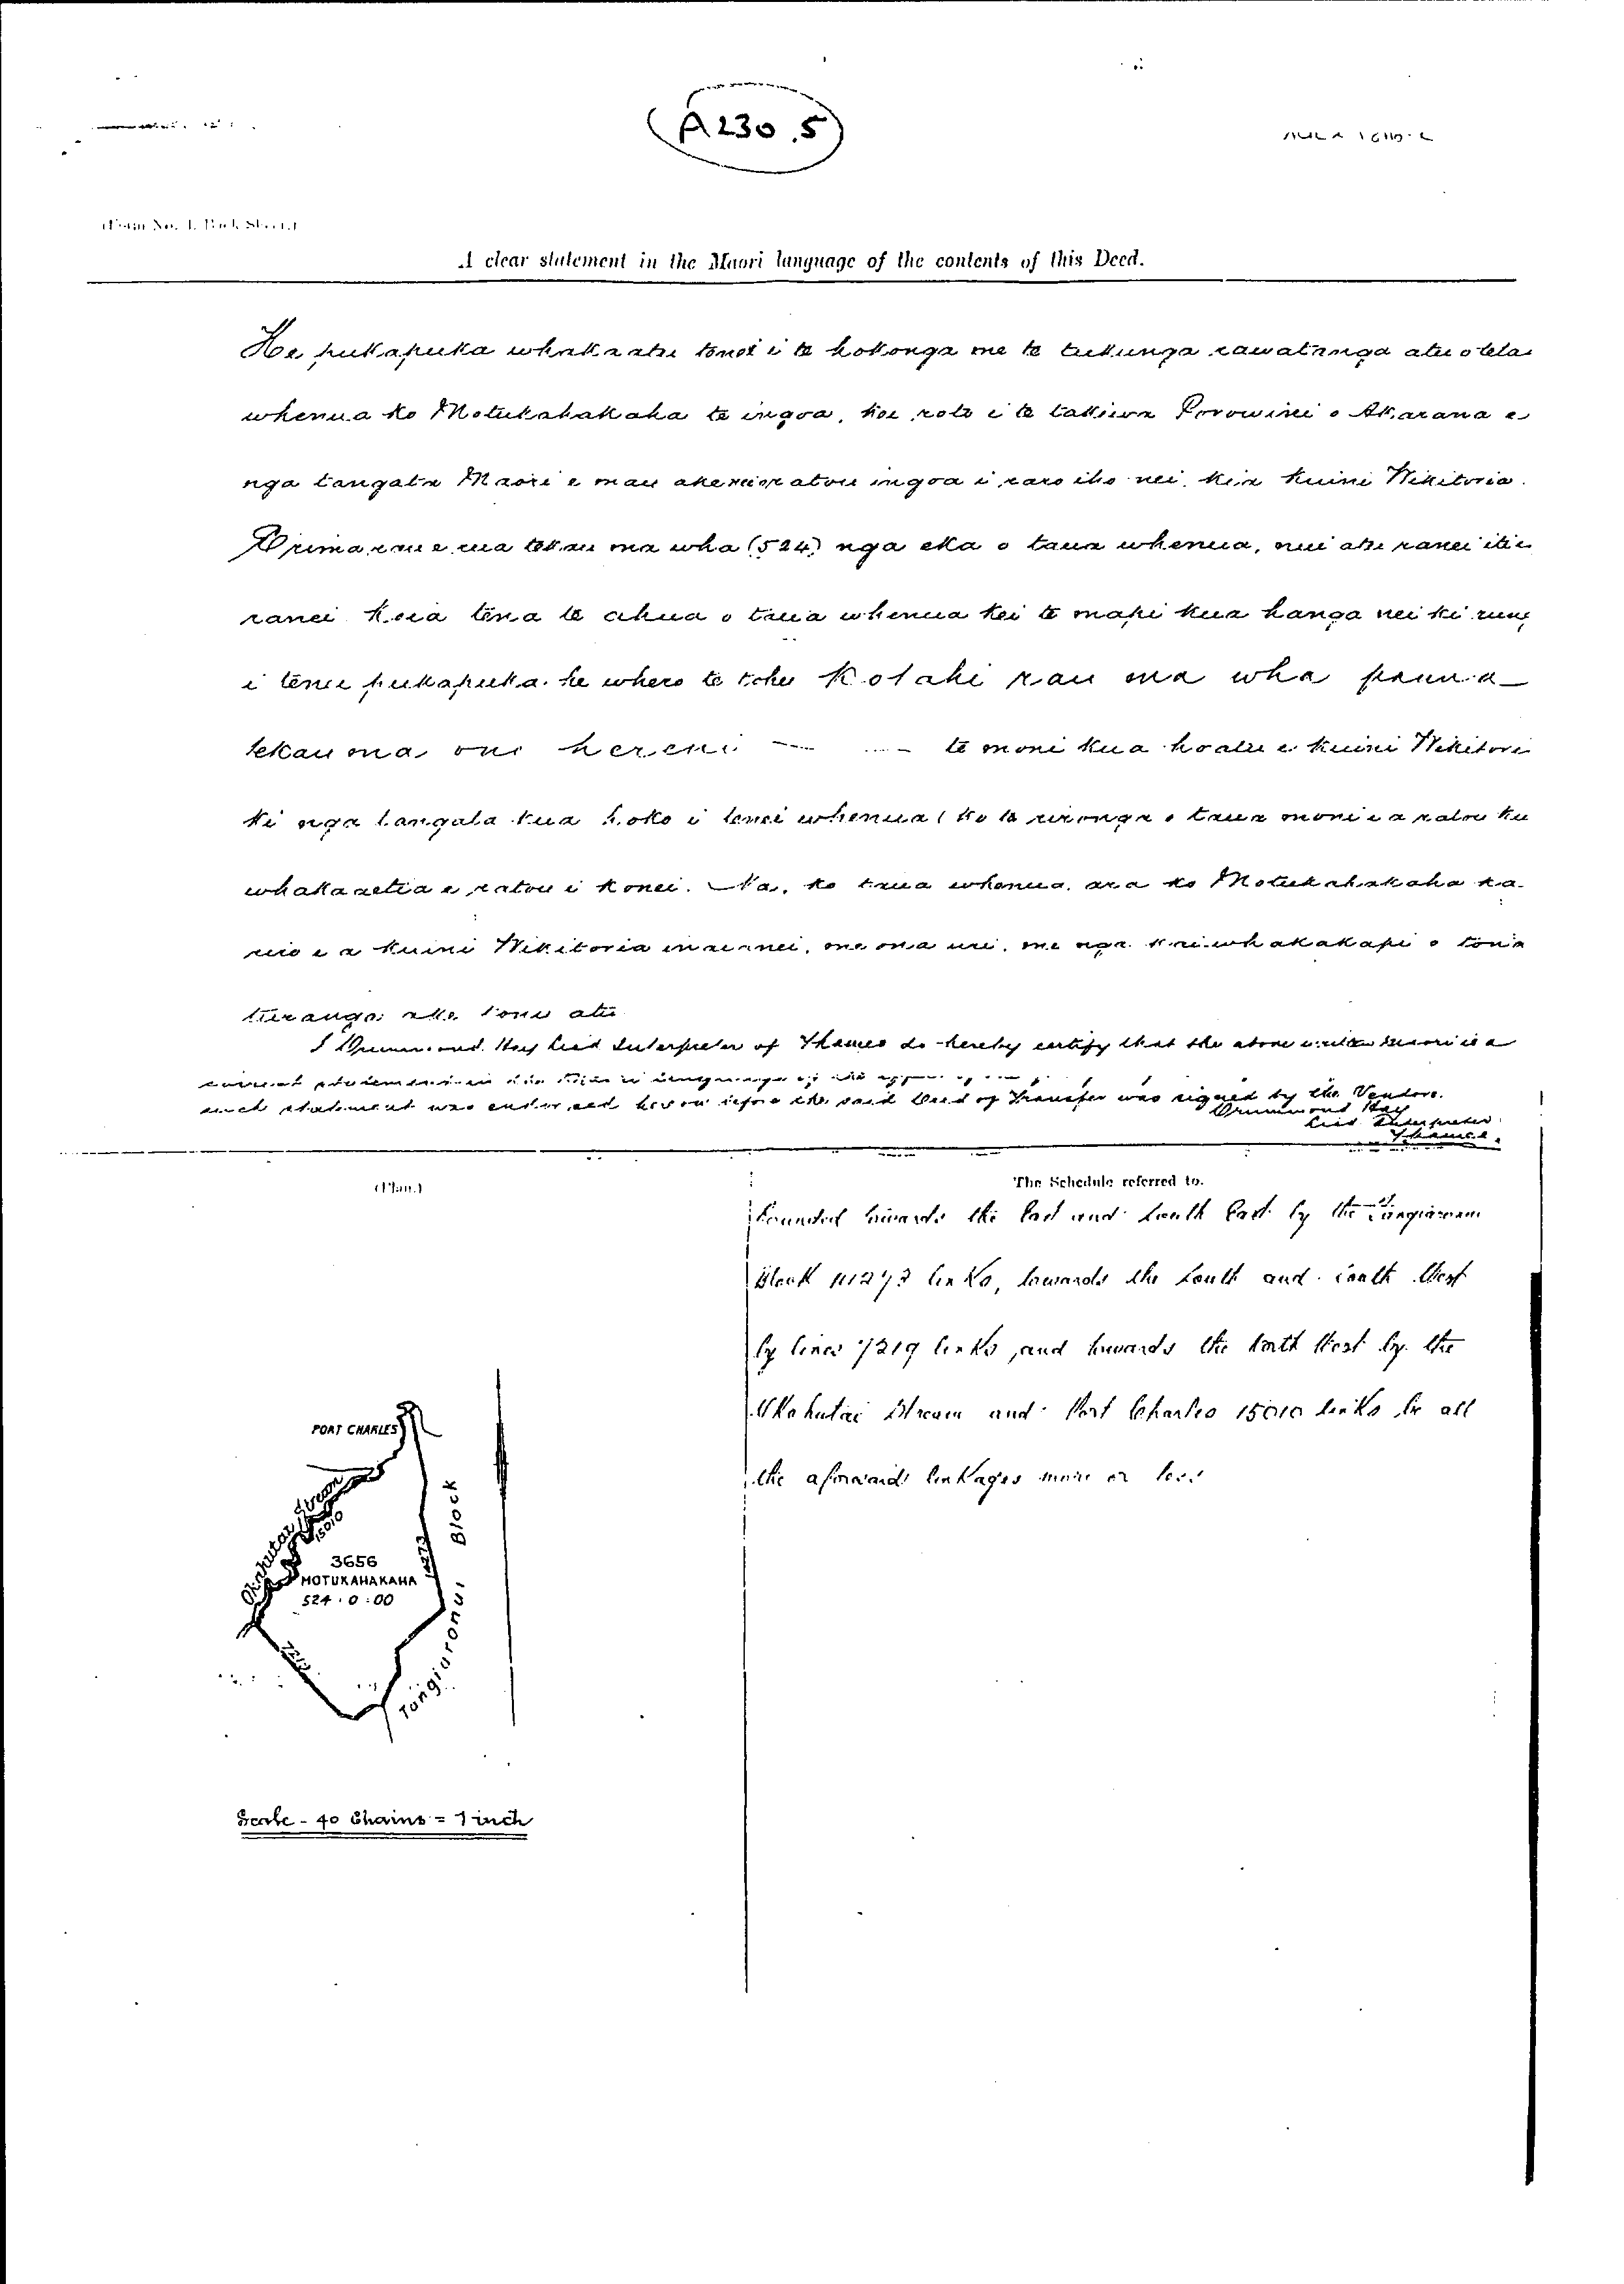 A230.5
A clear statement in the Maori language of the contents of this Deed.
He pukapuka whakaatu tenei i te hokonga me te tukunga rawatanga atu o tela
whenua ko Motukahakaha te ingoa, kei roto i te takiwa Porowini o Akarana e
nga tangata Maori e mau ake nei o ratou ingoa i raro iho nei, kia Kuini Wikitoria.
E rima rau e rua tekau ma wha (524) nga eka o taua whenua, nui atu ranei iti
ranei Koia tena te ahua o taua whenua kei te mapi kua hanga nei ki rung
i tenei pukapuka. he whero te Kotahi rau ma wha pauna
tekau ma ono hereni te moni kua hoatu e Kuini Wikitori
ki nga tangata kua hoko i tenei whenua, ko te rironga o taua moni i a ratou ku
whakaaetia e ratou i konei. Na, ko taua whenua, ara ko Motukahakaha ka
riro i a Kuini Wikitoria inaianei, me ona uri, me nga kaiwhakakapi o tona
turanga ake tonu atu
I Drummond Hay Licd Interpreter of Thames do hereby certify that the above written Maori is a
correct statement in the Maori language of the
such statement was endorsed hereon before the said Deed of Transfer was signed by the Vendors.
Drummond Hay
Licd Interpreter
Thames.
(Plan.)
The Schedule referred to.
Bounded towards the East and South East by the Tangiaronui
Block 11273 links, towards the South and South West
by lines 7219 links, and towards the North West by the
Okahutai Stream and Port Charles 15010 links be all
the aforesaid linkages more or less
PORT CHARLES
Okahutai Stream
15010
Block
3656
MOTUKAHAKAHA
524 : 0 : 00
Tangiaronui
Scale - 40 Chains = 1 inch